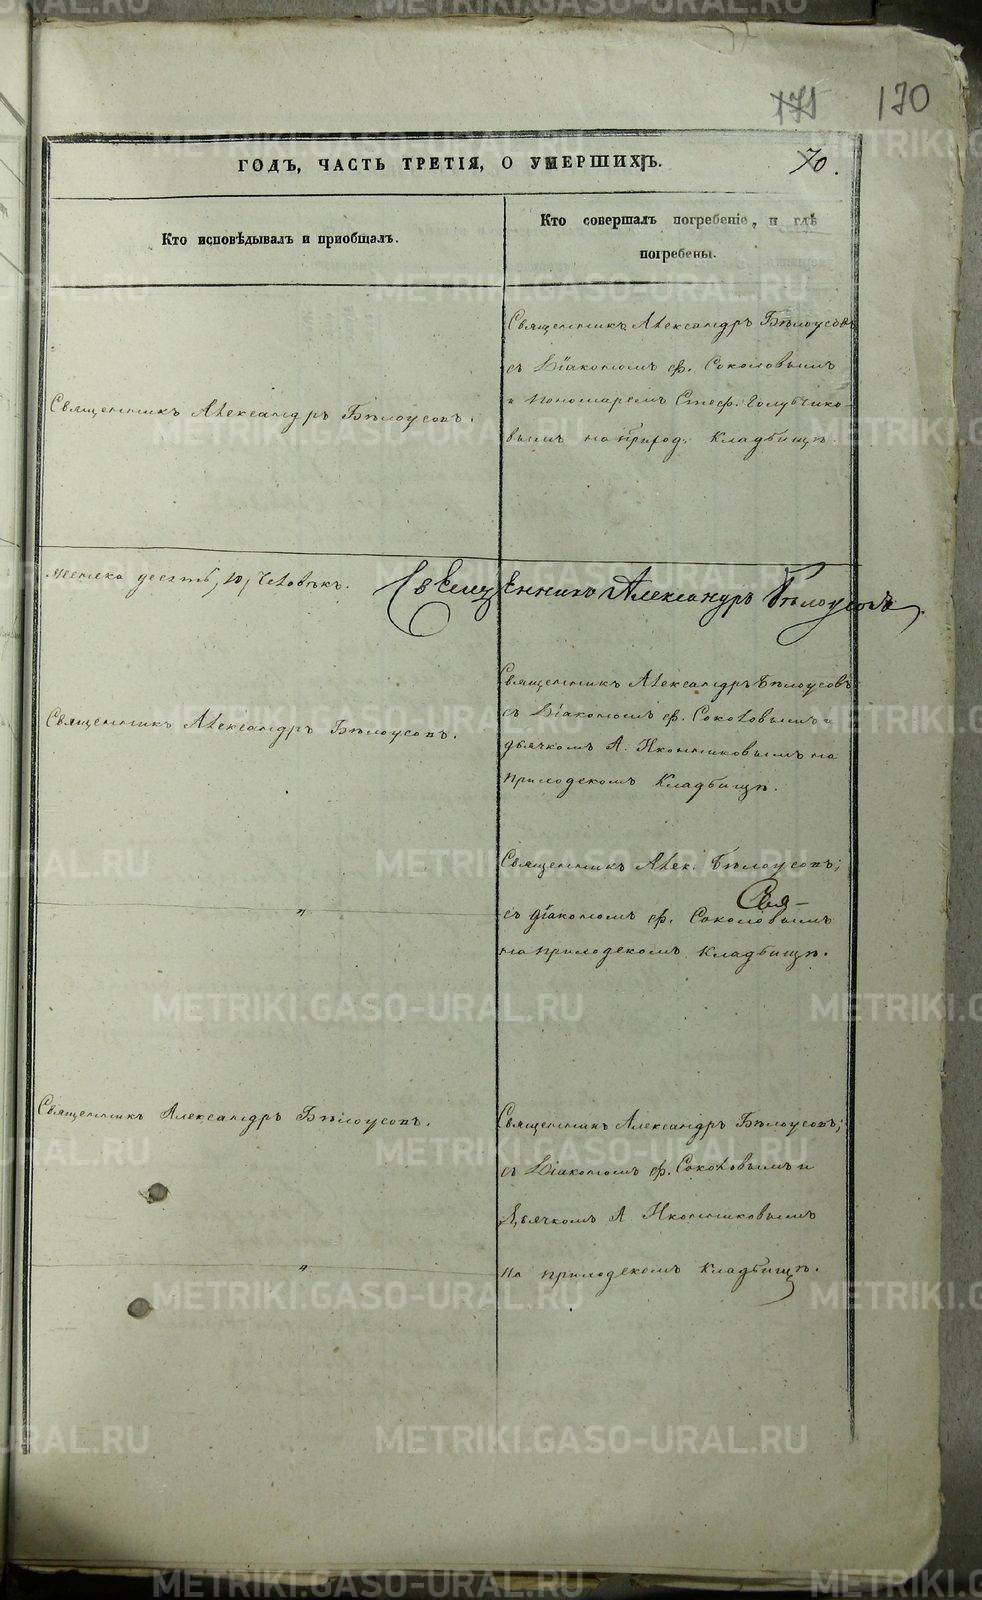 171 170
ГОДЪ, ЧАСТЬ ТРЕТІЯ, О УМЕРШИХЪ.
70.
Кто исповѣдывалъ и приобщалъ.
Кто совершалъ погребеніе, и гдѣ
погребены.
Священникъ Александръ Бѣлоусовъ.
Священникъ Александръ Бѣлоусовъ
съ Діакономъ Ф. Соколовымъ
и Пономаремъ Стеф. Голубчико-
вымъ на приход. Кладбищѣ.
пола десять, 10, человѣкъ.
Священникъ Александръ Бѣлоусовъ.
Священникъ Александръ Бѣлоусовъ.
Священникъ Александръ Бѣлоусовъ
съ Діакономъ Ф. Соколовымъ и
дьячкомъ А. Иконниковымъ на
приходскомъ Кладбищѣ.
"
Священникъ Алек. Бѣлоусовъ;
Свя-
съ діакономъ Ф. Соколовымъ
на приходскомъ Кладбищѣ.
Священникъ Александръ Бѣлоусовъ.
Священникъ Александръ Бѣлоусовъ;
съ Діакономъ Ф. Соколовымъ и
Дьячкомъ А. Иконниковымъ
"
на приходскомъ кладбищѣ.
METRIKI.GASO-URAL.RU